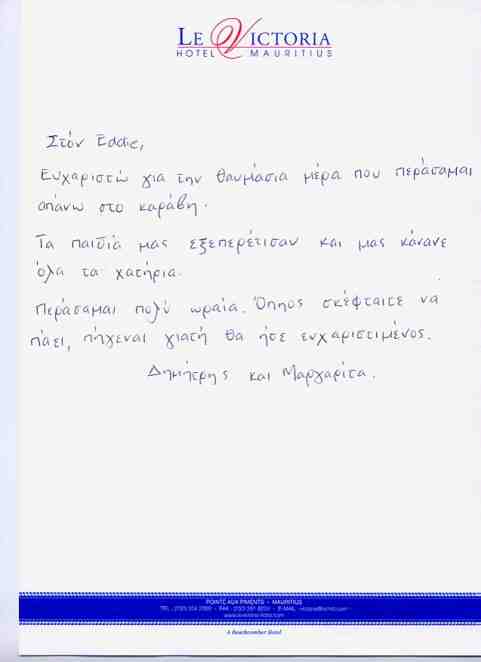 LE VICTORIA
HOTEL MAURITIUS
Στόν Eddie,
Ευχαριστώ για την θαυμάσια μέρα που περάσαμαι
απάνω στο καράβη.
Τα παιδιά μας εξεπερέτισαν και μας κάνανε
όλα τα χατήρια.
Περάσαμαι πολύ ωραία. Όπηος σκέφταιτε να
πάει, πήγεναι γιατή θα ήσε ευχαριστιμένος.
Δημήτρης και Μαργαρίτα.
POINTE AUX PIMENTS - MAURITIUS
A Beachcomber Hotel